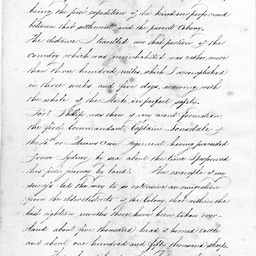 being the first expedition of the kind ever performed
between that settlement and the parent Colony.
The distance I travelled over that portion of the
country which was uninhabited was rather more
than three hundred miles, which I accomplished
in three weeks and five days, arriving with
the whole of the Stock in perfect safety.
Port Phillip was then of very recent formation
the first Commandant, Captain Lonsdale of
the 4th or King's Own Regiment having proceeded
from Sydney by sea about the time I performed
this first journey by land. The example of my
success led the way to so extensive an emigration
from the older districts of the Colony that within the
last eighteen months there have been taken over-
land about five thousand head of horned cattle
and about one hundred and fifty thousand sheep.